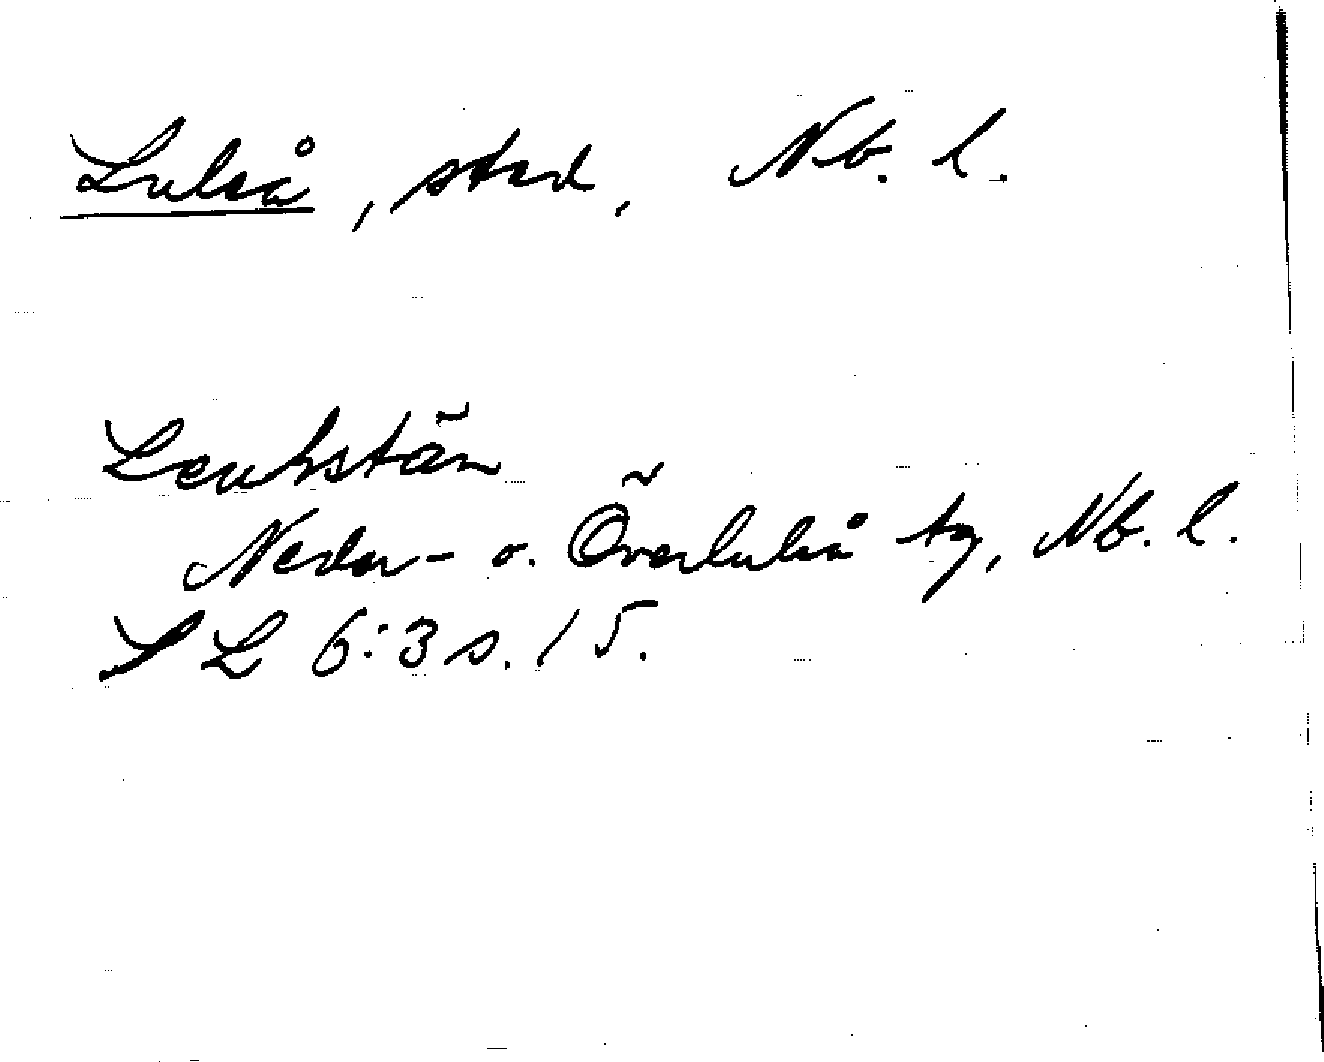 Luleå, stad, Nb. l.
Leuhstän
Neder- o. Överluleå tg, Nb. l.
SL 6:3 s. 15.